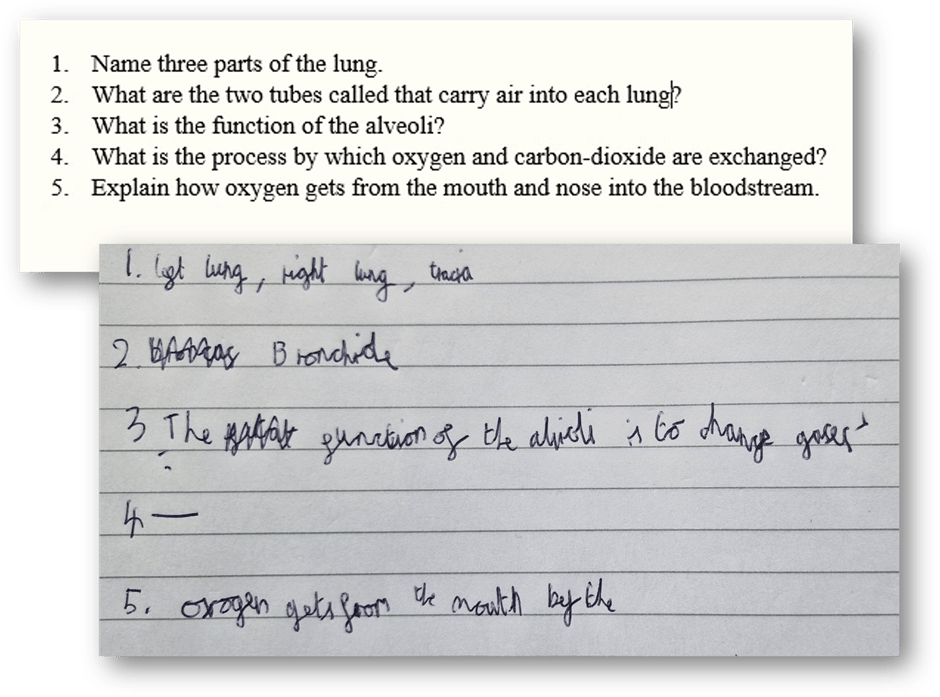 1. Name three parts of the lung.
2. What are the two tubes called that carry air into each lung?
3. What is the function of the alveoli?
4. What is the process by which oxygen and carbon-dioxide are exchanged?
5. Explain how oxygen gets from the mouth and nose into the bloodstream.
1. left lung, right lung, tracia
2. Bronchide
3 The function of the alvioli is to change gases
4 —
5. oxogen gets from the mouth by the